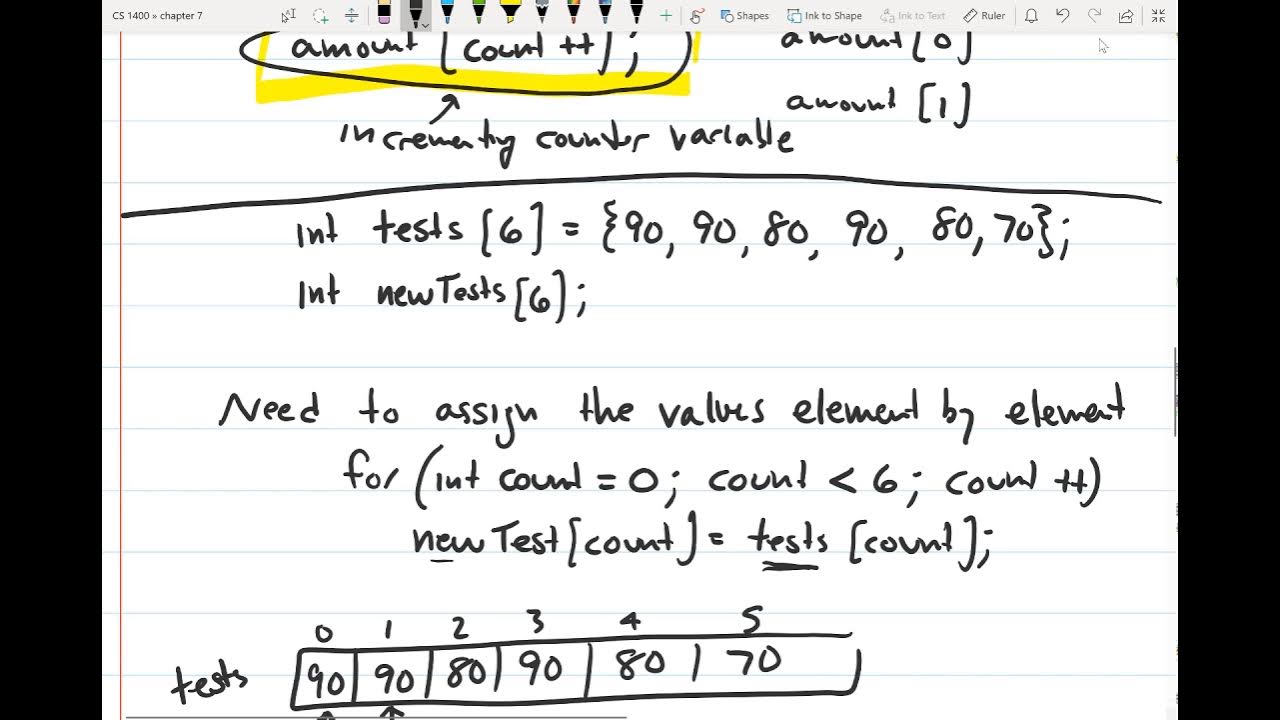 CS 1400 » chapter 7
Shapes
Ink to Shape
Ink to Text
Ruler
amount [count ++];
amount[0]
amount [1]
Incrementing counter variable
Int tests [6] = {90, 90, 80, 90, 80, 70};
Int newTests[6];
Need to assign the values element by element
for (int count = 0; count < 6; count ++)
newTest[count] = tests [count];
0 1 2 3 4 5
tests 90 90 80 90 80 70